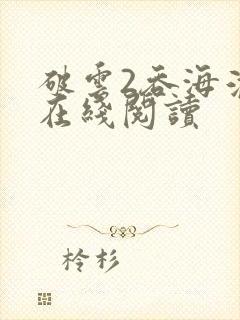 破雲2吞海
在綫閱讀
柃杉